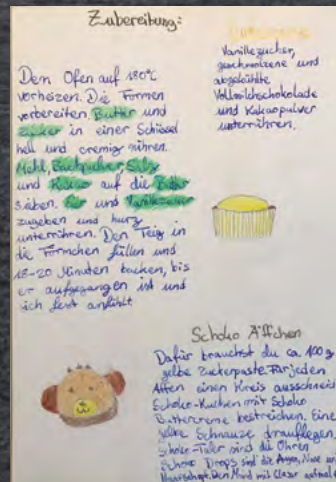 Zubereitung:
Den Ofen auf 180°C
vorheizen. Die Formen
vorbereiten. Butter und
Zucker in einer Schüssel
hell und cremig rühren.
Mehl, Backpulver, Salz
und Kakao auf die Butter
sieben. Eier und Vanillezucker
zugeben und kurz
unterrühren. Den Teig in
die Förmchen füllen und
18-20 Minuten backen, bis
er aufgegangen ist und
sich fest anfühlt
Vanillezucker,
geschmolzene und
abgekühlte
Vollmilchschokolade
und Kakaopulver
unterrühren.
Schoko Äffchen
Dafür brauchst du ca. 100 g
gelbe Zuckerpaste. Für jeden
Affen einen Kreis ausschneid
Schoko-Kuchen mit Schoko
Buttercreme bestreichen. Eine
gelbe Schnauze drauflegen.
Schoko-Taler sind die Ohren
Schoko Drops sind die Augen, Nase
Den Mund mit Glasur